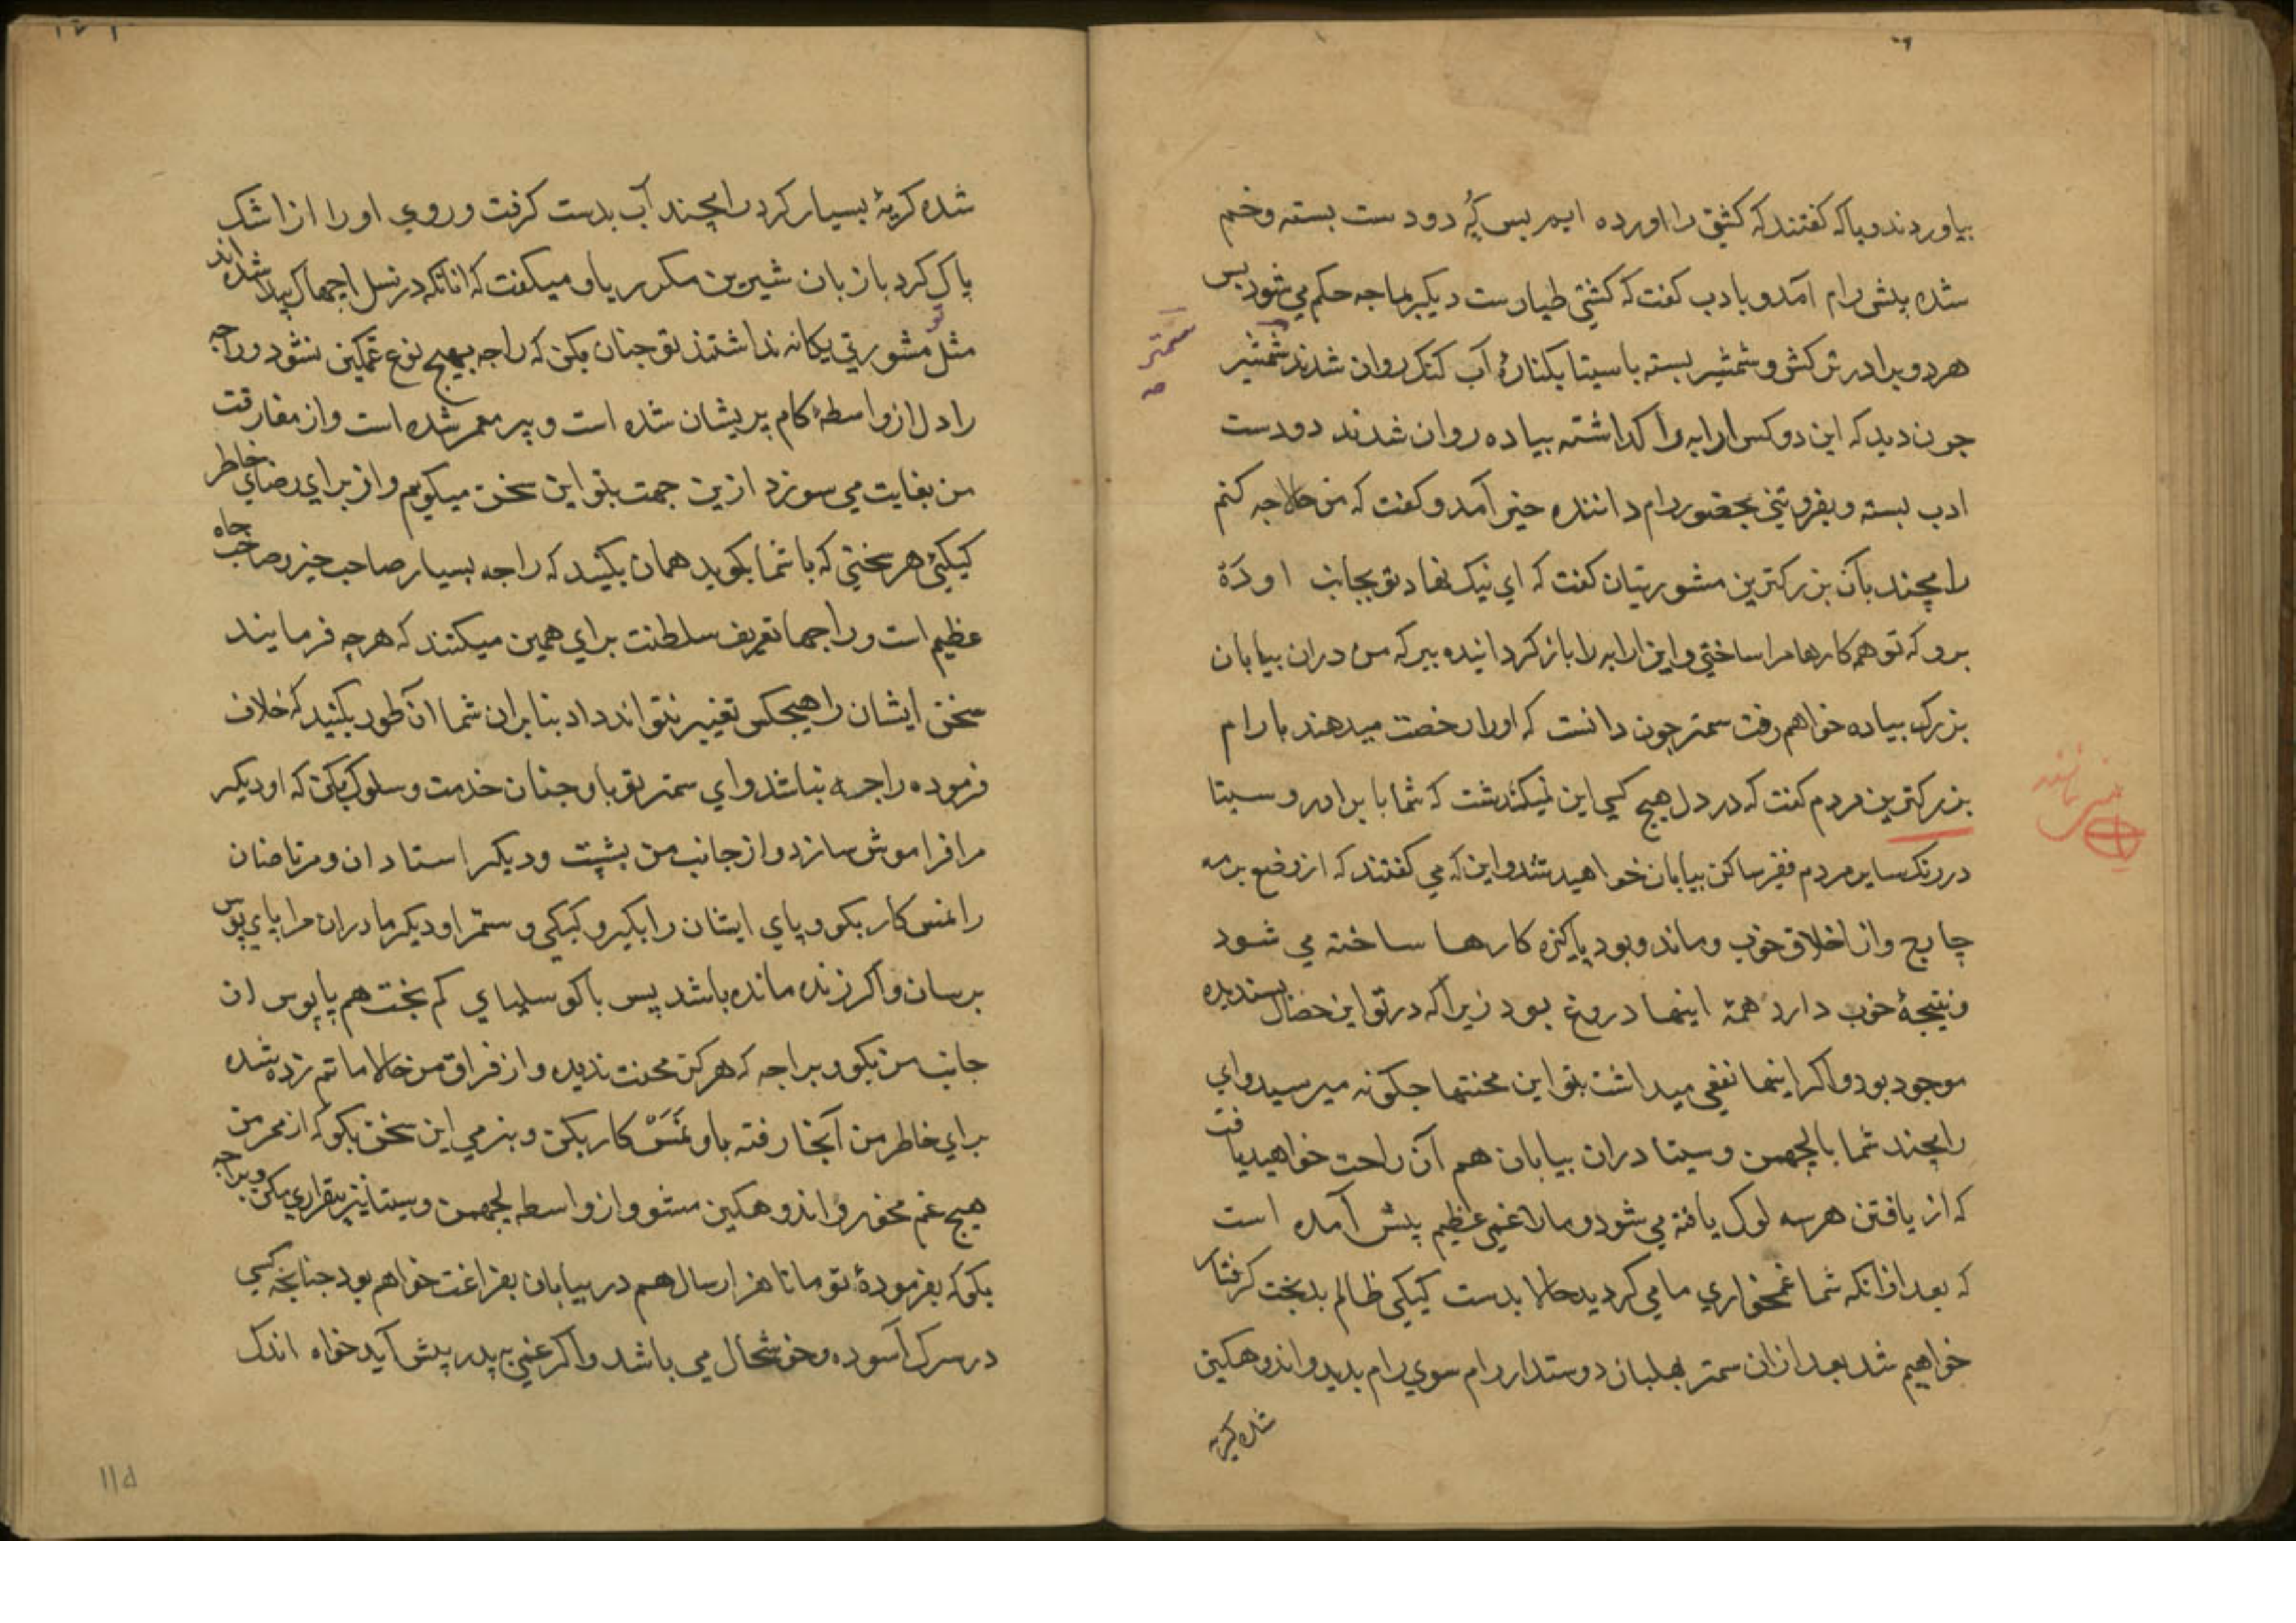 بیاوردند و باکه کفتند که کشتی را اورده ایم پس کُه دودست بسته وخم
شده پیش رام آمد و بادب کفت که کشتی طیارست دیکر بما چه حکم می شود پس
هردو برادر ترکش و شمشیر بسته با سیتا بکنارهٔ آب کنک روان شدند شمشیر
سمتر
جون دید که این دو کس ارابه را کذاشته پیاده روان شدند دودست
ادب بسته و بفروتنی بحضور رام داننده خیر آمد و کفت که من حالا چه کنم
رامچند بآن بزرکترین مشورتیان کفت که ای نیک نهاد تو بجانب اودَهْ
برو که تو همه کارهای مرا ساختی و این ارابه را باز کردانیده ببر که من دران بیابان
بزرک پیاده خواهم رفت سمتر جون دانست که اورا رخصت میدهند با رام
بزرکترین مردم کفت که در دل هیچ کسی این نمیکذشت که شما با برادر و سیتا
در رنک سایر مردم فقیر ساکن بیابان خواهید شد و این که می کفتند که از وضع برمه
چارج و از اخلاق خوب و ماند و بود پاکیزه کارها ساخته می شود
و نتیجهٔ خوب دارد همه اینها دروغ بود زیرا که در تو این خصال پسندیده
موجود بود و اکر اینها نفعی میداشت بتو این محنتها جکونه میرسید و ای
رامچند شما با لچهمن و سیتا دران بیابان هم آن راحت خواهید یافت
که از یافتن هر سه لوک یافته می شود و مارا غمی عظیم پیش آمده است
که بعد ازانکه شما غمخواری ما می کردید حالا بدست کیکی ظالم بدبخت کرفتار
خواهیم شد بعد ازان سمتر بهلبان دوستدار رام سوی رام بدید و اندوهکین
شده کریه
شده کریهٔ بسیار کرد رامچند آب بدست کرفت و روی او را از اشک
پاک کرد با زبان شیرین مکرر باو میکفت که انانکه در نسل اجهواک پیدا شده اند
مثل تو مشورتی یکانه نداشتند تو جنان بکن که راجه بهیج نوع غمکین نشود و راجه
را دل از واسطهٔ کام پریشان شده است و پیر معمر شده است و از مفارقت
من بغایت می سوزد ازین جهت بتو این سخن میکویم و از برای رضای خاطر
کیکئی هر سخنی که با شما بکوید همان بکنید که راجه بسیار صاحب خیر و صاحب جاه
عظیم است و راجها تعریف سلطنت برای همین میکنند که هرچه فرمایند
سخن ایشان را هیچکس تغییر نتواند داد بنابران شما آن طور بکنید که خلاف
فرموده راجه نباشد و ای سمتر تو باو جنان خدمت و سلوک بکن که او دیکر
مرا فراموش سازد و از جانب من بشپت و دیکر استادان و مرتاضان
را نمسکار بکو و پای ایشان را بکیر و کیکی و سمترا و دیکر مادران مرا پای پوس
برسان و اکر زنده مانده باشد پس با کوسلیای کم بخت هم پاپوس از
جانب من بکو و براجه که هرکز محنت ندیده و از فراق من حالا ماتم زده شده
برای خاطر من آنجا رفته باو نَمَسْ کار بکن و بنرمی این سخن بکو که از ممر من
هیچ غم مخور و اندوهکین مشو و از واسطه لچهمن و سیتا نیز بیقراری مکن و براجه
بکو که بفرمودهٔ تو ما تا هزار سال هم در بیابان بفراغت خواهم بود جنانجه کسی
در سرک آسوده و خوشحال می باشد و اکر غمی به پدر پیش آید خواه اندک